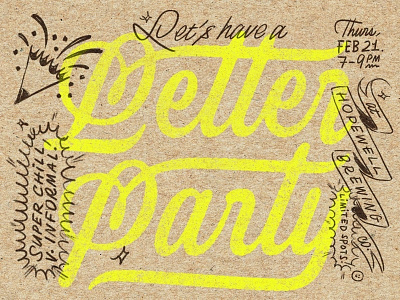 Let's have a
Letter
Party
Thurs,
FEB 21.
7-9PM
at
HOPEWELL
BREWING
CO
LIMITED SPOTS!
SUPER CHILL,
V. INFORMAL!